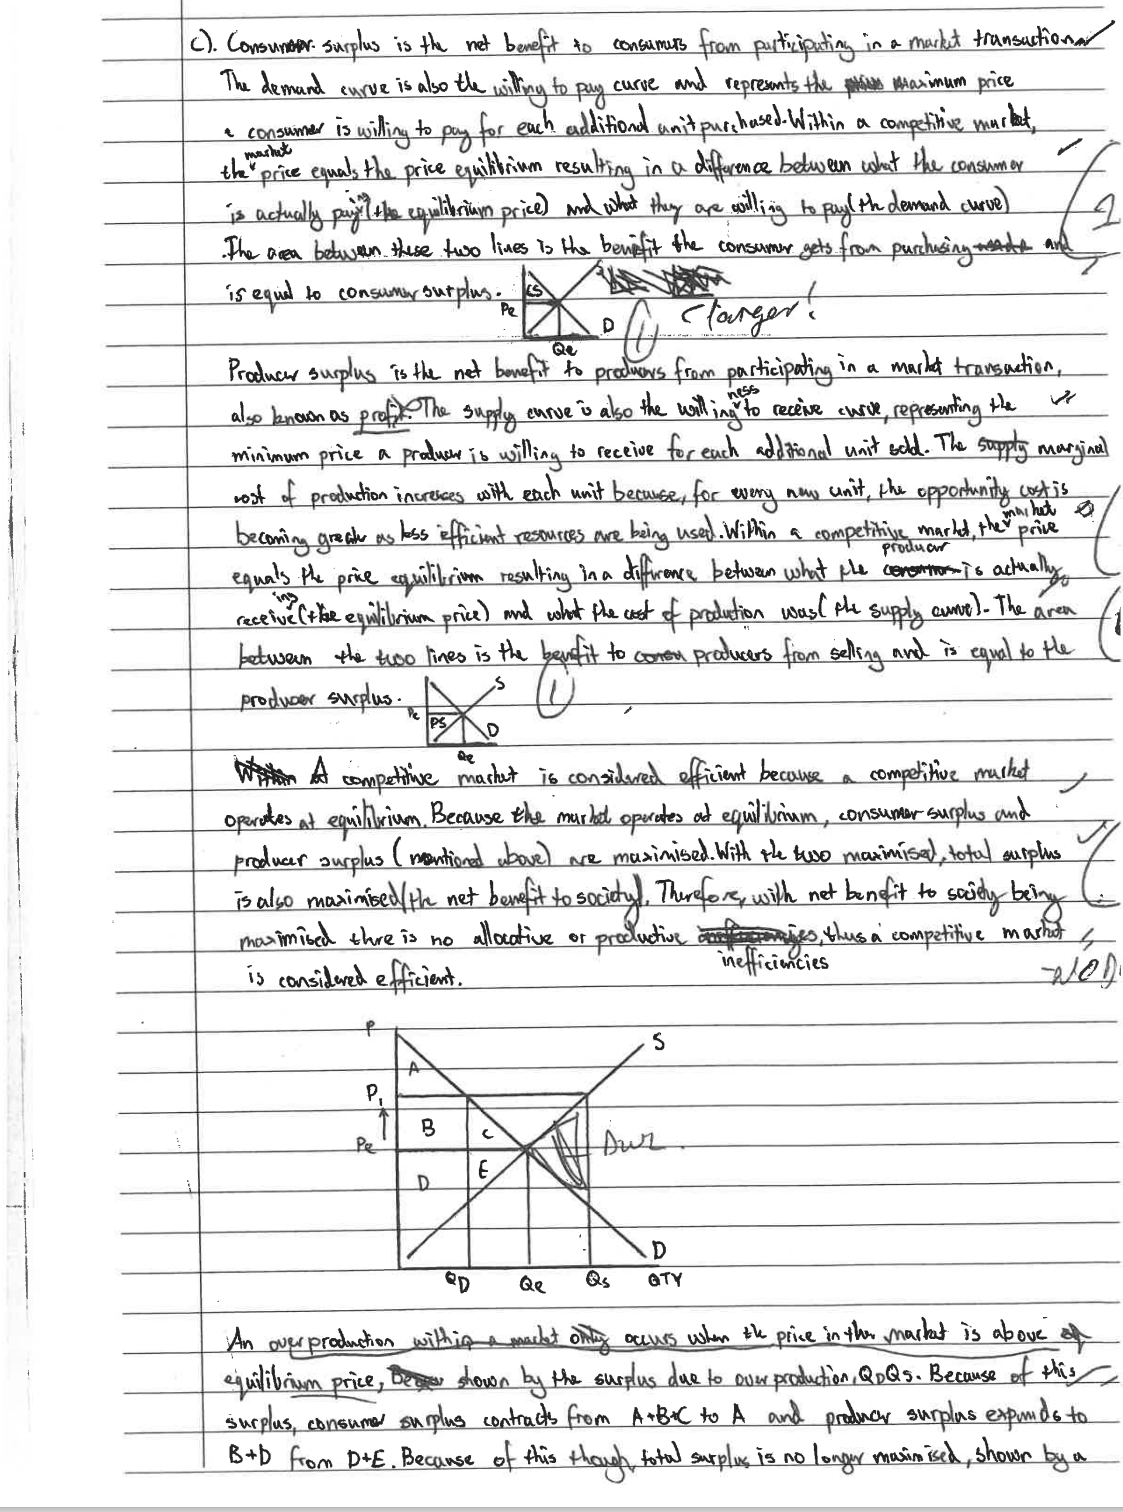 c). Consumer surplus is the net benefit to consumers from participating in a market transaction.
The demand curve is also the willing to pay curve and represents the maximum price
a consumer is willing to pay for each additional unit purchased. Within a competitive market,
the market price equals the price equilibrium resulting in a difference between what the consumer
is actually paying (the equilibrium price) and what they are willing to pay (the demand curve)
. The area between these two lines is the benefit the consumer gets from purchasing and
is equal to consumer surplus.
CS
S
Pe
D
Qe
1
1
Larger!
Producer surplus is the net benefit to producers from participating in a market transaction,
also known as profit. The supply curve is also the willingness to receive curve, representing the
minimum price a producer is willing to receive for each additional unit sold. The supply marginal
cost of production increases with each unit because, for every new unit, the opportunity cost is
becoming greater as less efficient resources are being used. Within a competitive market, the market price
equals the price equilibrium resulting in a difference between what the producer is actually
receiving (the equilibrium price) and what the cost of production was (the supply curve). The area
between the two lines is the benefit to producers from selling and is equal to the
producer surplus.
S
Pe
PS
D
Qe
1
A competitive market is considered efficient because a competitive market
operates at equilibrium. Because the market operates at equilibrium, consumer surplus and
producer surplus (mentioned above) are maximised. With the two maximised, total surplus
is also maximised (the net benefit to society). Therefore, with net benefit to society being
maximised thre is no allocative or productive inefficiencies, thus a competitive market
is considered efficient.
P
S
A
P1
B
C
Pe
DWL
D
E
D
QD
Qe
Qs
QTY
An overproduction within a market only occurs when the price in the market is above
equilibrium price, shown by the surplus due to overproduction, QDQs. Because of this
surplus, consumer surplus contracts from A+B+C to A and producer surplus expands to
B+D from D+E. Because of this though, total surplus is no longer maximised, shown by a